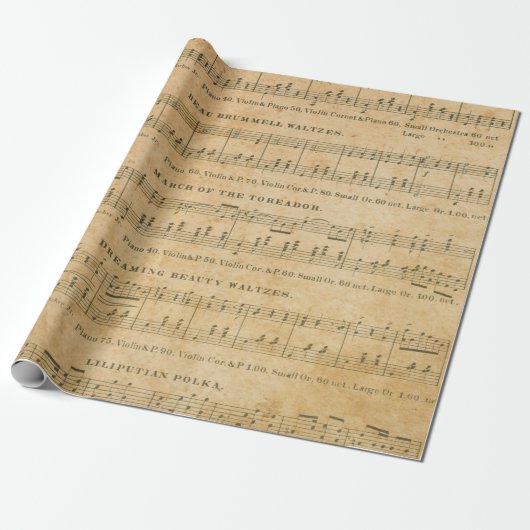 Piano 40. Violin & Piano 50, Violin Cornet & Piano 60. Small Orchestra 60 net
Large ,, 100 ,,
BEAU BRUMMELL WALTZES.
Piano 60. Violin & P. 70. Violin Cor. & P. 80. Small Or. 60 net. Large Or. 1.00. net
MARCH OF THE TOREADOR.
Piano 40. Violin & P. 50. Violin Cor. & P. 60. Small Or. 60 net. Large Or. 100. net
DREAMING BEAUTY WALTZES.
Piano 75. Violin & P. 90. Violin Cor. & P 1.00. Small Or. 60 net. Large Or. 1.00.
LILIPUTIAN POLKA.